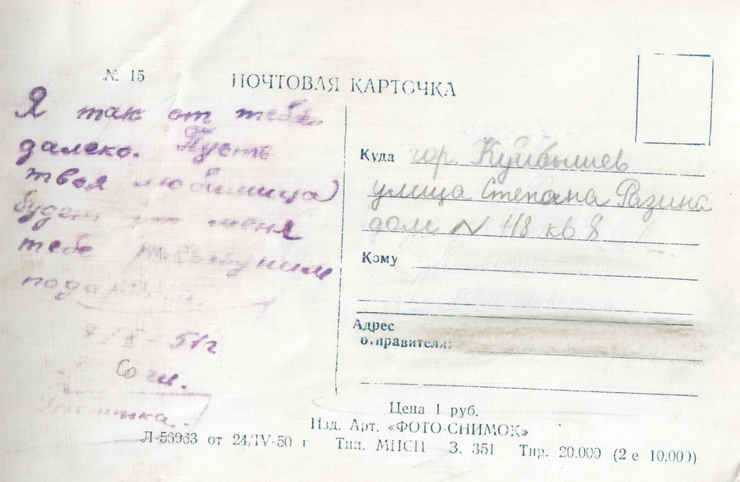 № 15
ПОЧТОВАЯ КАРТОЧКА
Я так от тебя
далеко. Пусть
твоя любимица
будет от меня
тебе
51г
Куда гор. Куйбышев
улица Степана Разина
дом N 118 кв 8
Кому
Адрес
отправителя:
Цена 1 руб.
Изд. Арт. «ФОТО-СНИМОК»
Л-56933 от 24/IV-50 г Тип. МПСП З. 351 Тир. 20.000 (2 е 10.000)